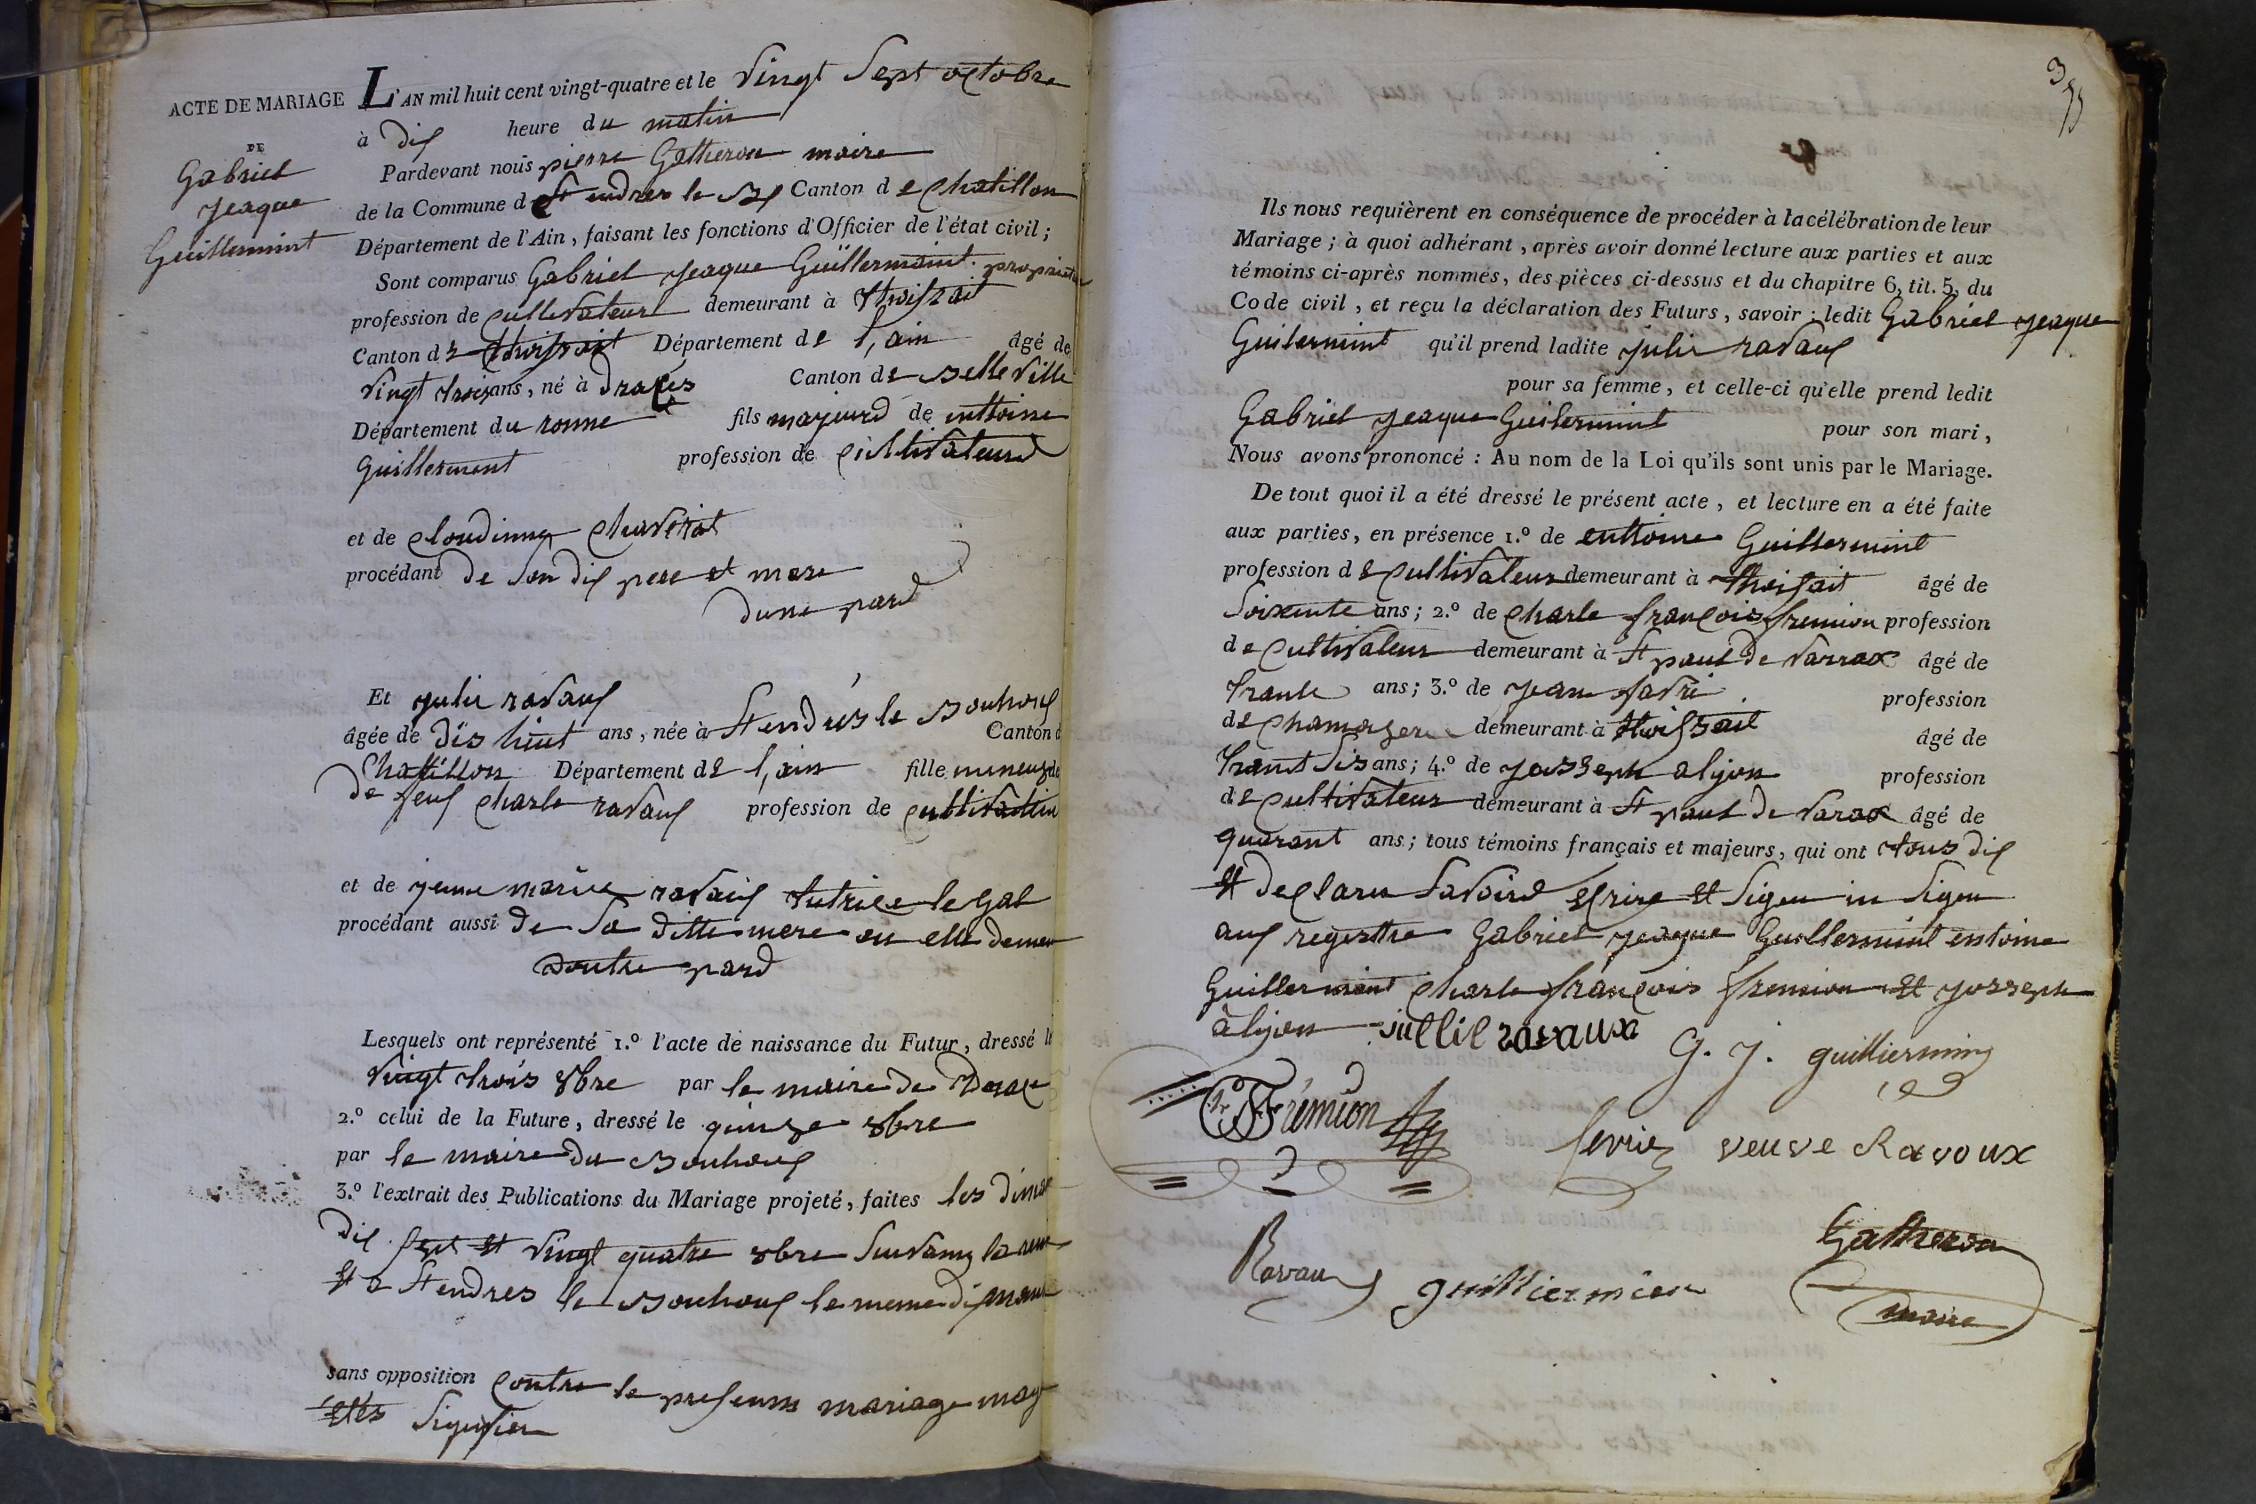 ACTE DE MARIAGE
DE
Gabriel
jeaque
Guillermint
L'AN mil huit cent vingt-quatre et le vingt sept octobre
à dix heure du matin
Pardevant nous pierre Gatheron maire
de la Commune de St endres le Canton de Chatillon
Département de l'Ain, faisant les fonctions d'Officier de l'état civil;
Sont comparus Gabriel jeaque Guillermaint proprietaire
profession de cultivateur demeurant à thoissait
Canton de thoissait Département de l,ain âgé de
vingt trois ans, né à Draces Canton de Belleville
Département du ronne fils majeurd de enttoinne
Guillerment profession de cultivateurd
et de cloudinne Chaverot
procédant de son dis pere et mere
dune pard
Et julie ravaux
âgée de dis huit ans, née à St endrés le Bouhoux Canton d
Chatillon Département de l,ain fille mineurs de
de feux charle ravaux profession de cultivateur
et de jenne marie ravaux tutrice legal
procédant aussi de sa ditte mere ou elle demeu
doutre pard
Lesquels ont représenté 1.º l'acte de naissance du Futur, dressé le
vingt trois 8bre par le maire de Drace
2.º celui de la Future, dressé le quinze 8bre
par le maire du Bouhoux
3.º l'extrait des Publications du Mariage projeté, faites les diman
dix sept et vingt quatre 8bre
et a St endres le Bouhoux le meme dimanc
sans opposition contre le presenns mariage may
etés signifier
3
Ils nous requièrent en conséquence de procéder à la célébration de leur
Mariage; à quoi adhérant, après avoir donné lecture aux parties et aux
témoins ci-après nommés, des pièces ci-dessus et du chapitre 6, tit. 5, du
Code civil, et reçu la déclaration des Futurs, savoir: ledit Gabriel jeaque
Guilermint qu'il prend ladite julie ravaux
pour sa femme, et celle-ci qu'elle prend ledit
Gabriel jeaque Guilermint pour son mari,
Nous avons prononcé: Au nom de la Loi qu'ils sont unis par le Mariage.
De tout quoi il a été dressé le présent acte, et lecture en a été faite
aux parties, en présence 1.º de enttoine Guillermint
profession de cultivateur demeurant à thoisait âgé de
soixente ans; 2.º de charle françois fremion profession
de cultivateur demeurant à St paul de varrax âgé de
trante ans; 3.º de jean favri profession
de demeurant à thoissait âgé de
trant sis ans; 4.º de josseph alijon profession
de cultivateur demeurant à St paul de varax âgé de
quarant ans; tous témoins français et majeurs, qui ont tous dis
et declaru savoird ecrire et signer
aux registre Gabriel jeaque Guillermint entoine
Guillermint charle françois fremion et josseph
alijon jullie ravaux
G. J. guilliermin
Frémion
fevrie veuve Ravoux
Ravaux guilliermien
Gatheron
maire